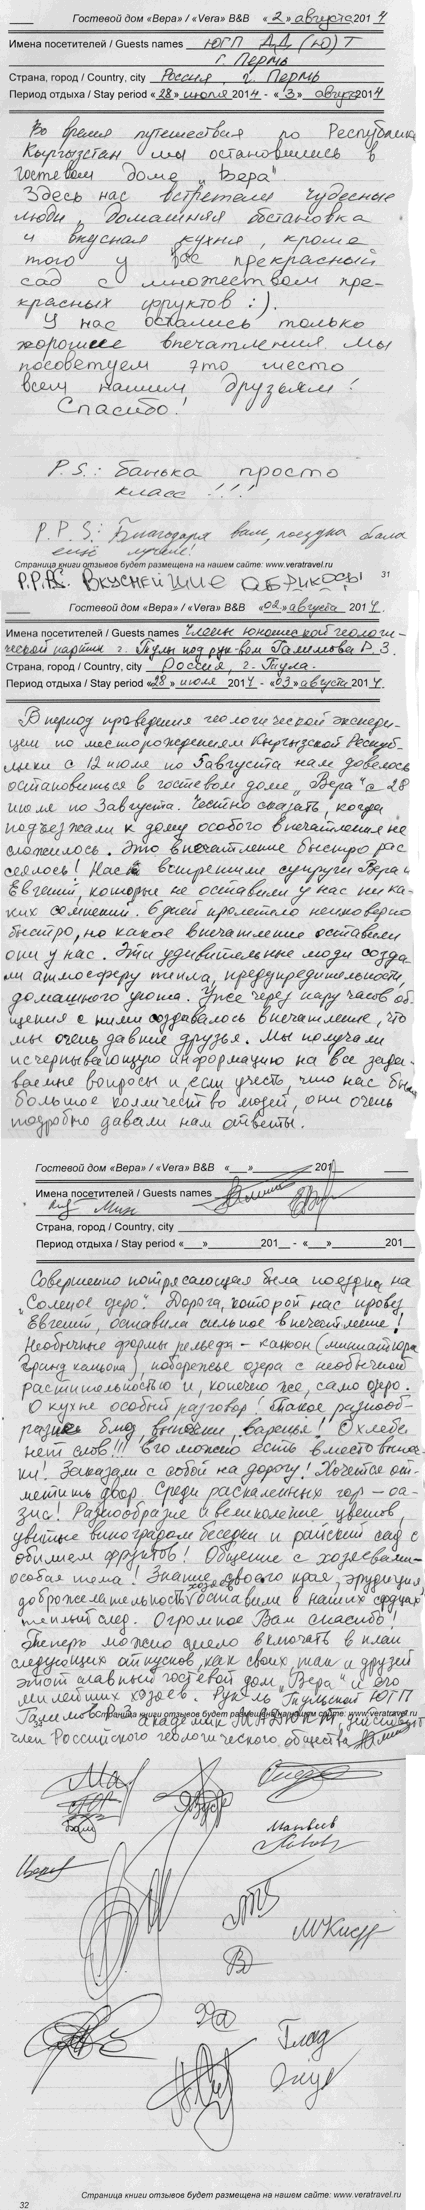 Гостевой дом «Вера» / «Vera» B&B «2» августа 2014
Имена посетителей / Guests names ЮГП ДД(Ю)Т
г. Пермь
Страна, город / Country, city Россия, г. Пермь
Период отдыха / Stay period «28» июля 2014 - «3» август 2014
Во время путешествия по Республике
Кыргызстан мы остановились в
гостевом доме „Вера".
Здесь нас встретили чудесные
люди, домашняя обстановка
и вкусная кухня, кроме
того у вас прекрасный
сад с множеством пре-
красных фруктов :).
У нас остались только
хорошие впечатления. Мы
посоветуем это место
всем нашим друзьям!
Спасибо!
P.S.: банька просто
класс !!!
P.P.S.: Благодаря вам, поездка была
ещё лучше!
Страница книги отзывов будет размещена на нашем сайте: www.veratravel.ru
31
P.P.P.S. Вкуснейшие абрикосы
Гостевой дом «Вера» / «Vera» B&B «02» августа 2014.
Имена посетителей / Guests names Члены юношеской геологи-
ческой партии г. Тулы под рук-вом Галимова Р. З.
Страна, город / Country, city Россия, г. Тула.
Период отдыха / Stay period «28» июля 2014 - «03» августа 2014.
В период проведения геологической экспеди-
ции по месторождениям Кыргызской Респуб-
лики с 12 июля по 5 августа нам довелось
остановиться в гостевом доме „Вера" с 28
июля по 3 августа. Честно сказать, когда
подъезжали к дому особого впечатления не
сложилось. Это впечатление быстро рас
сеялось! Нас встретили супруги Вера и
Евгений, которые не оставили у нас ника-
ких сомнений. 6 дней пролетело неимоверно
быстро, но какое впечатление оставили
они у нас. Эти удивительные люди созда-
ли атмосферу тепла, предупредительности,
домашнего уюта. Уже через пару часов об-
щения с ними создавалось впечатление, что
мы очень давние друзья. Мы получали
исчерпывающую информацию на все зада-
ваемые вопросы и, если учесть, что нас было
большое колличество людей, они очень
подробно давали нам ответы.
Гостевой дом «Вера» / «Vera» B&B «___» 201__
Имена посетителей / Guests names
Страна, город / Country, city
Период отдыха / Stay period «___» 201__ - «___» 201__
Совершенно потрясающая была поездка на
„Соленое озеро". Дорога, которой нас провез
Евгений, оставила сильное впечатление!
Необычные формы рельефа – каньон (миниатюра
Гранд каньона), побережье озера с необычной
растительностью и, конечно же, само озеро.
О кухне особый разговор! Такое разнооб-
разие блюд, выпечки, варенья! О хлебе
нет слов!!! Его можно есть вместо выпеч-
ки! Заказали с собой на дорогу! Хочется от-
метить двор. Среди раскаленных гор – оа-
зис! Разнообразие и великолепие цветов,
увитые виноградом беседки и райский сад с
обилием фруктов! Общение с хозяевами –
особая тема! Знание своего края, эрудиция,
доброжелательность хозяев оставили в наших сердцах
теплый след. Огромное Вам спасибо!
Теперь можно смело включать в план
следующих отпусков, как своих так и друзей
этот славный гостевой дом „Вера" и его
милейших хозяев. Рук-ль Тульской ЮГП
Страница книги отзывов будет размещена на нашем сайте: www.veratravel.ru
Галимов академик МАДЮТК, действит.
член Российского геологического общества
Матвеев
Глад
Страница книги отзывов будет размещена на нашем сайте: www.veratravel.ru
32